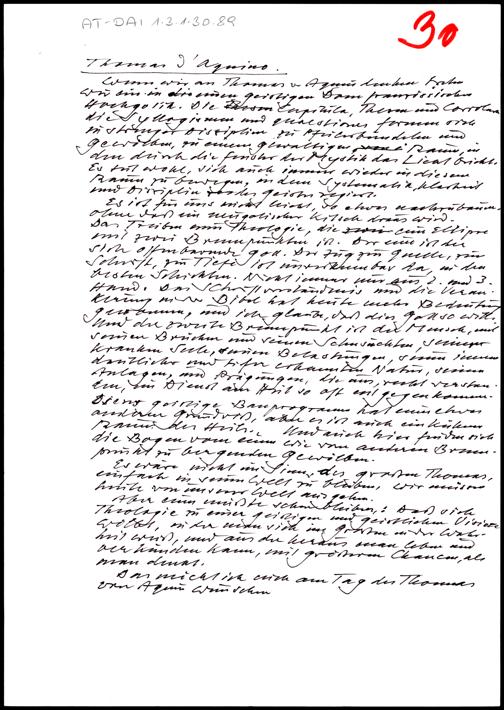 AT-DAI 1.3.1.30.89
30
Thomas v. Aquino.
Wenn wir an Thomas v. Aquin denken stehn
wir wie in einem geistigen Dom französischer
Hochgotik. Die Capitula, Themen und Corollarien
die Syllogismen und Quaestiones, formen sich
in strenger Disziplin zu Pfeilerbündeln und
Gewölben, zu einem gewaltigen Raum, in
den durch die Fenster der Mystik das Licht bricht.
Es tut wohl, sich auch immer wieder in diesem
Raum zu bewegen, in dem Systematik, Klarheit
und Disziplin des Geistes regiert.
Es ist für uns nicht leicht, so etwas nachzubauen
ohne daß ein neugotischer Kitsch draus wird.
Das Treiben von Theologie, die eine Ellipse
mit zwei Brennpunkten ist. Der eine ist der
sich offenbarende Gott. Der Zug zur Quelle, zur
Schrift, zur Tiefe ist unverkennbar da, in den
besten Schichten. Nicht immer nur aus 2. und 3.
Hand. Das Schriftverständnis und die Veran-
kerung in der Bibel hat heute mehr Bedeutung
gewonnen, und ich glaube, daß dies Gott so will.
Und der zweite Brennpunkt ist der Mensch, mit
seinen Brüchen und seinen Sehnsüchten, seiner
kranken Seele, seinen Belastungen, seiner immer
deutlicher und tiefer erkannten Natur, seinen
Anlagen, und Prägungen, die uns, recht verstan-
den, im Dienst am Heil so oft entgegenkommen.
Dieses geistige Bauprogramm hat einen etwas
anderen Grundriß, aber es ist auch ein kühner
Raum des Heils. Und auch hier finden sich
die Bogen vom einen wie vom anderen Brenn-
punkt zu bergenden Gewölben.
Es wäre nicht im Sinn des großen Thomas,
einfach in seiner Welt zu bleiben, wir müssen
heute von unserer Welt ausgehn.
Aber eins müßte schon bleiben: Daß sich
Theologie zu einer geistigen und geistlichen Vision
wölbt, in der man sich im großen in der Wahr-
heit weiß, und aus der heraus man leben und
verkünden kann, mit größeren Chancen, als
man denkt.
Das möchte ich euch am Tag des Thomas
von Aquin wünschen